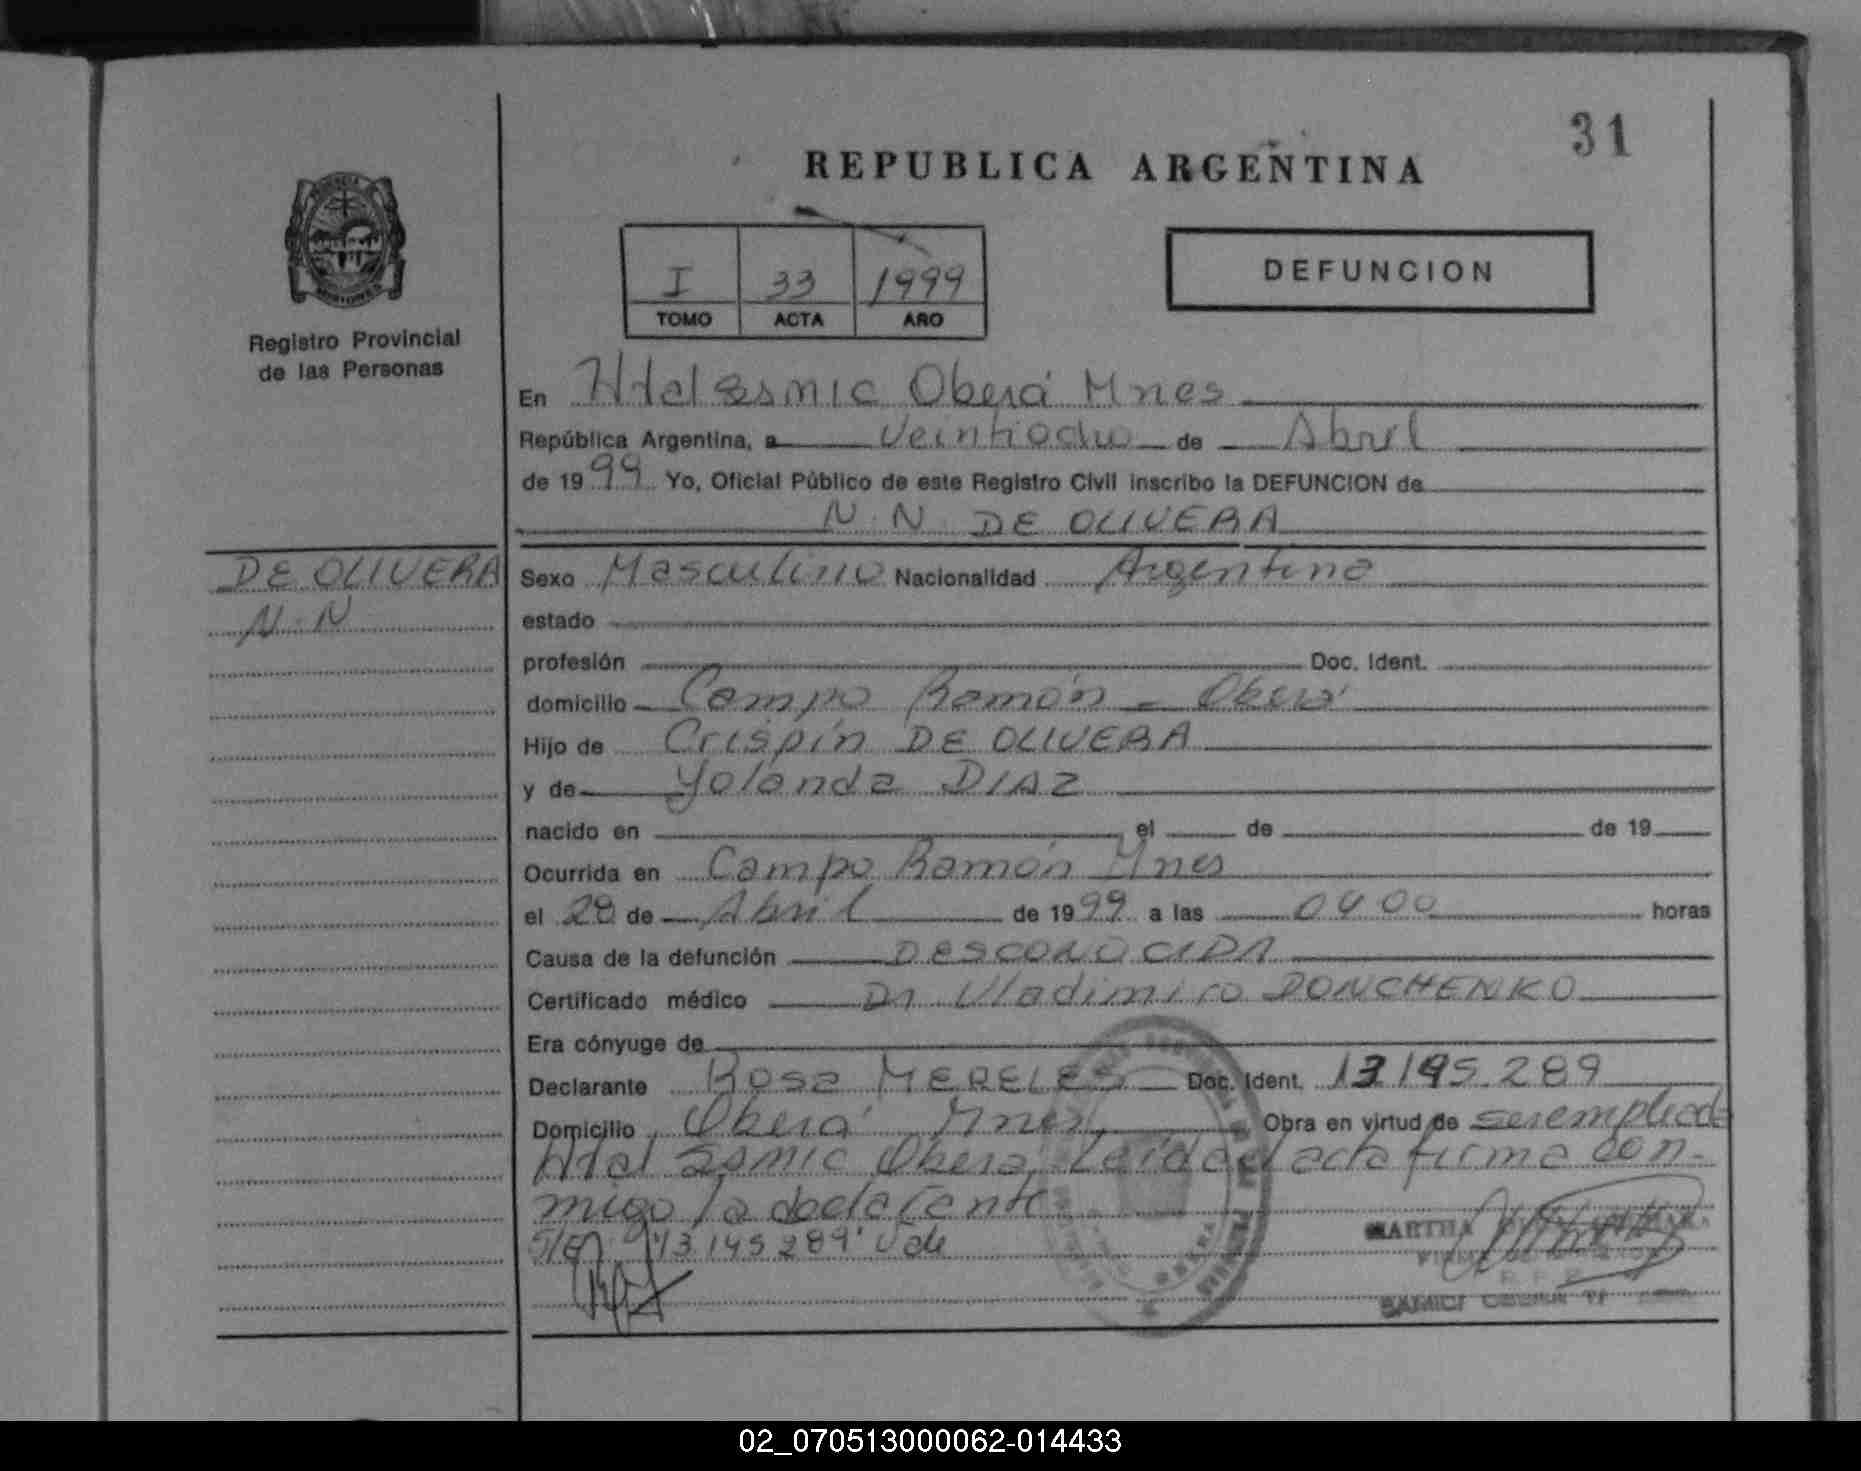 31
REPUBLICA ARGENTINA
I 33 1999
TOMO ACTA AÑO
DEFUNCION
Registro Provincial
de las Personas
En Htal Samic Oberá Mnes
República Argentina, a Veintiocho de Abril
de 1999 Yo, Oficial Público de este Registro Civil inscribo la DEFUNCION de
N.N. DE OLIVERA
DE OLIVERA
N.N
Sexo Masculino Nacionalidad Argentina
estado
profesión Doc. Ident.
domicilio Campo Ramón - Oberá
Hijo de Crispín DE OLIVERA
y de Yolanda DIAZ
nacido en el de de 19
Ocurrida en Campo Ramón Mnes
el 28 de Abril de 1999 a las 04 00 horas
Causa de la defunción DESCONOCIDA
Certificado médico Dr Vladimiro DONCHENKO
Era cónyuge de
Declarante Rosa MERELES Doc. Ident. 13.195.289
Domicilio Oberá Mnes. Obra en virtud de ser empleada
Htal Samic Oberá, Leída el acta firma con-
migo la declarante
S/E 13.195.289 Vale
MARTHA
R.P.P.
SAMIC OBERA
02_070513000062-014433